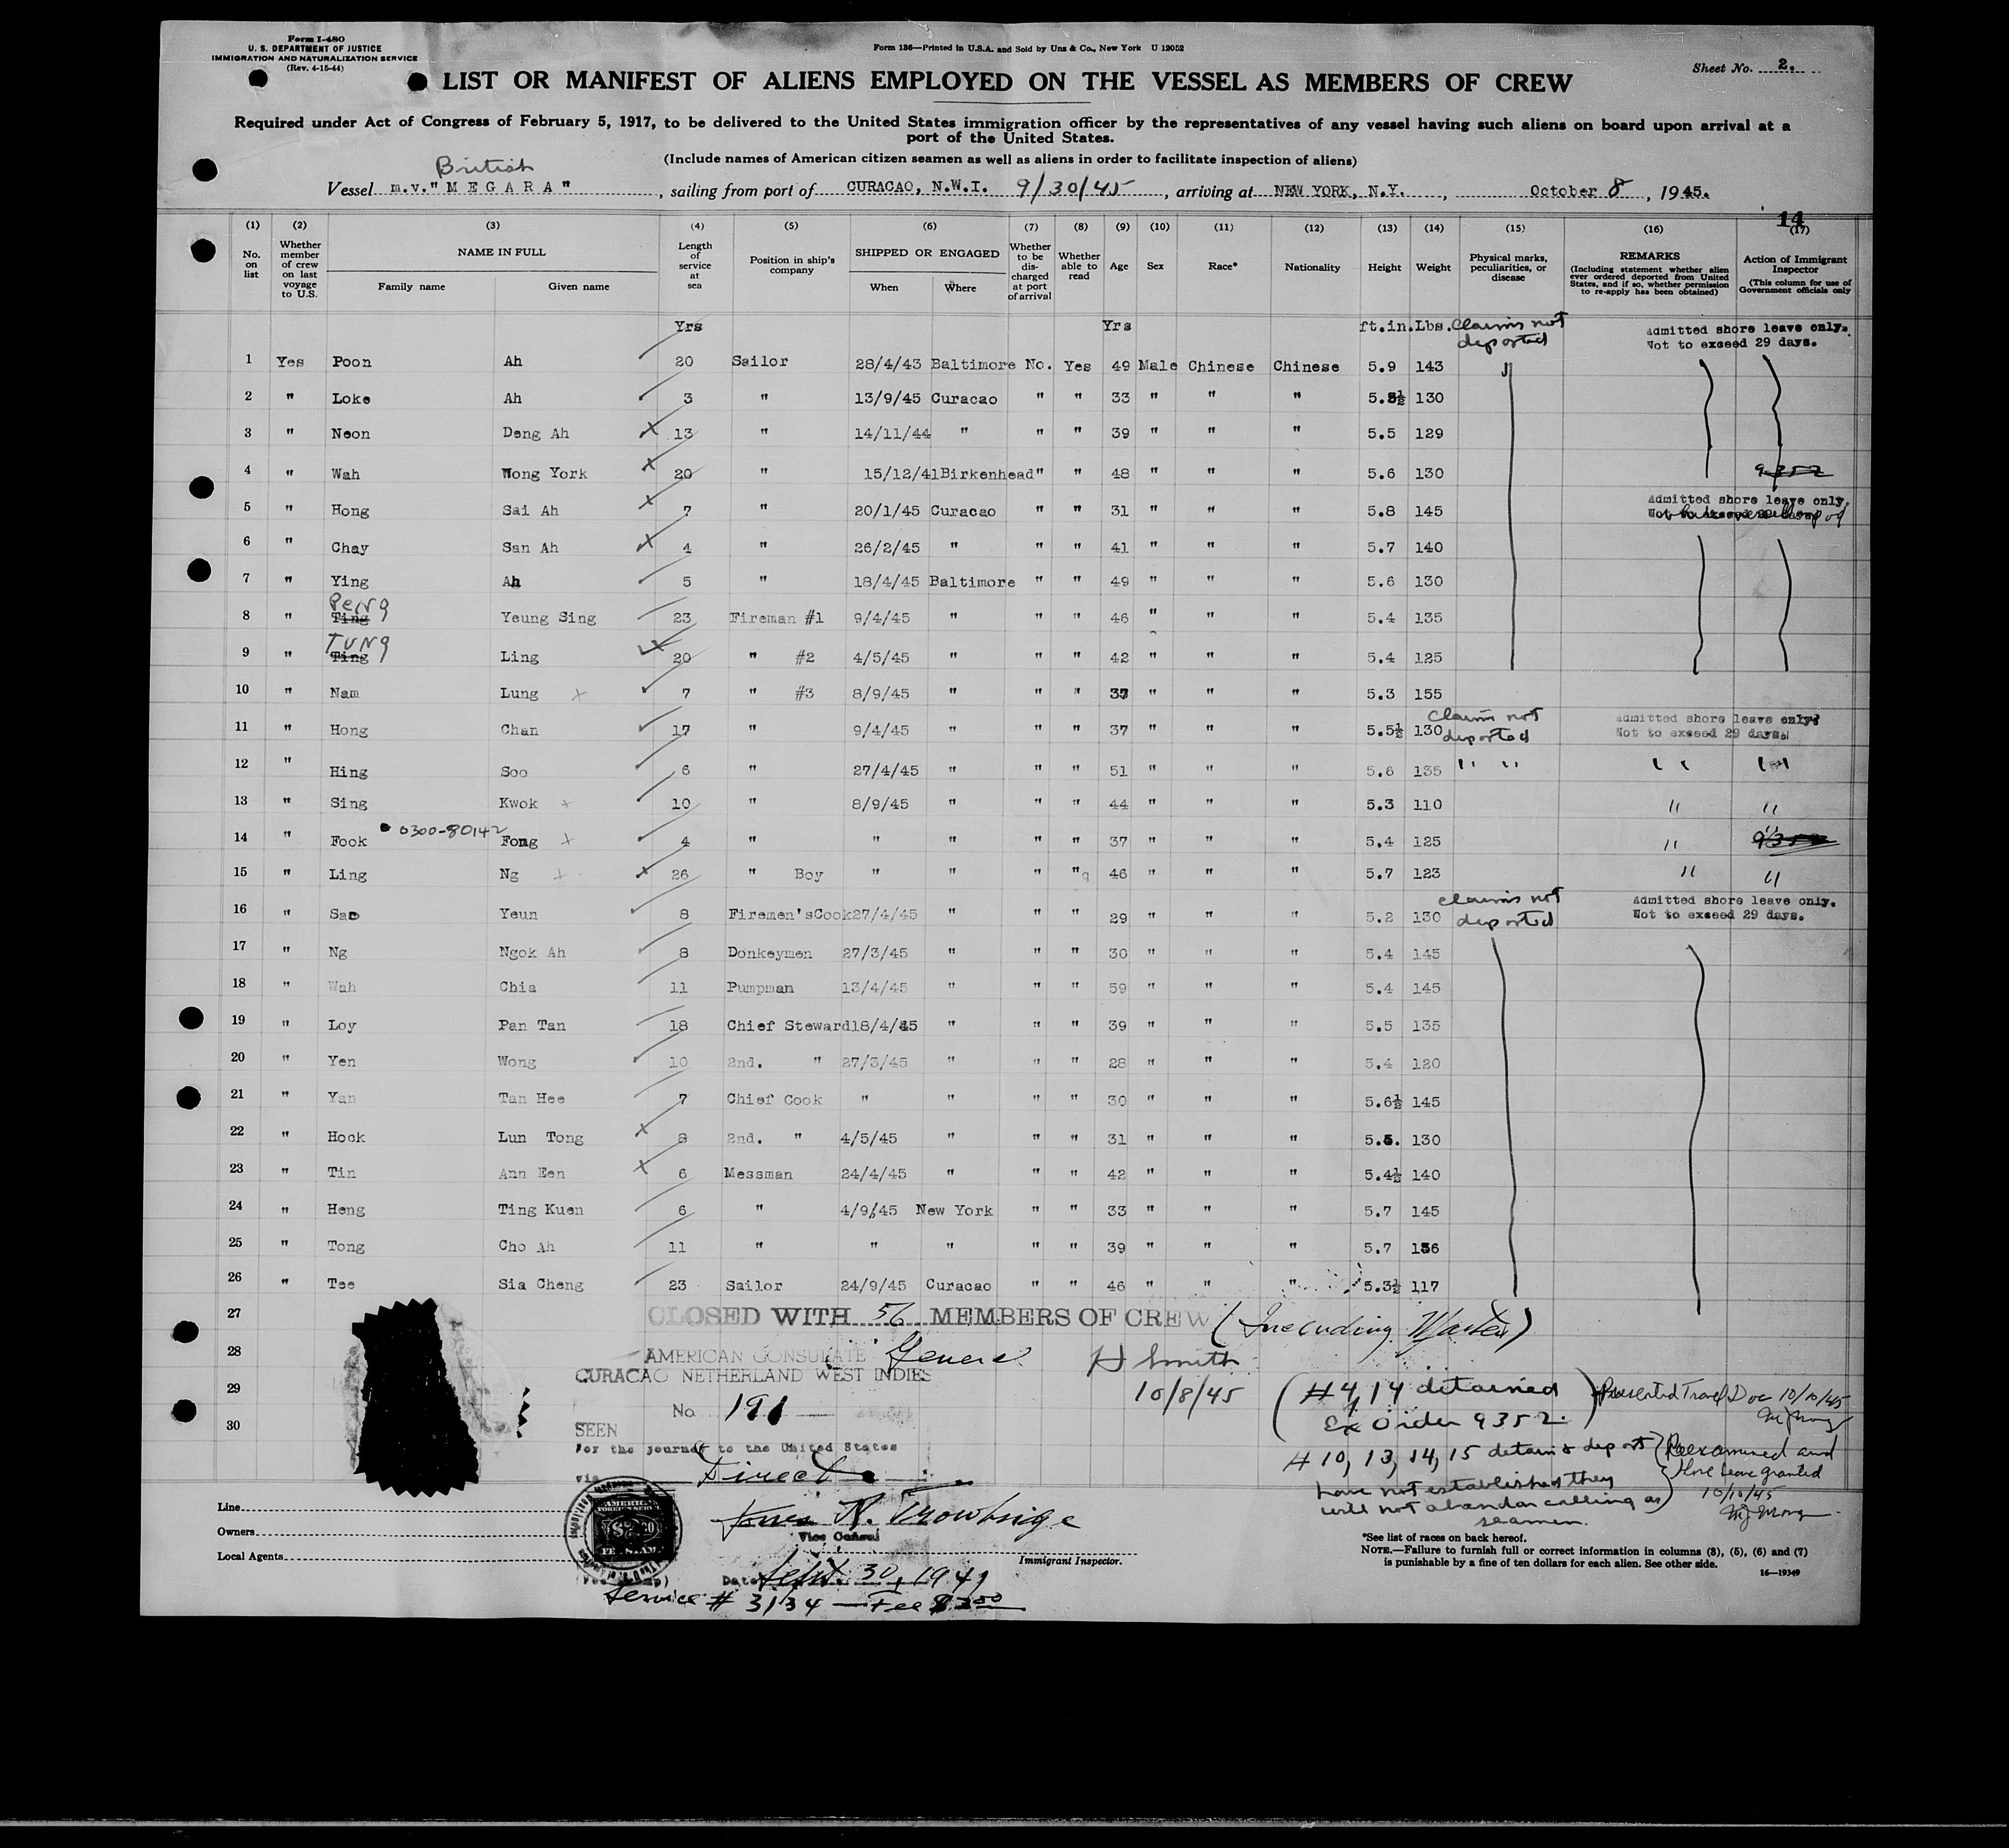 Form I-480
U. S. DEPARTMENT OF JUSTICE
IMMIGRATION AND NATURALIZATION SERVICE
(Rev. 4-15-44)
Form 136—Printed in U.S.A. and Sold by Unz & Co., New York U 12052
Sheet No. 2.
LIST OR MANIFEST OF ALIENS EMPLOYED ON THE VESSEL AS MEMBERS OF CREW
Required under Act of Congress of February 5, 1917, to be delivered to the United States immigration officer by the representatives of any vessel having such aliens on board upon arrival at a
port of the United States.
(Include names of American citizen seamen as well as aliens in order to facilitate inspection of aliens)
British
Vessel m.v. "MEGARA", sailing from port of CURACAO, N.W.I. 9/30/45, arriving at NEW YORK, N.Y., October 8, 1945.
14
(1) (2) (3) (4) (5) (6) (7) (8) (9) (10) (11) (12) (13) (14) (15) (16) (17)
No. on list | Whether member of crew on last voyage to U.S. | NAME IN FULL Family name Given name | Length of service at sea | Position in ship's company | SHIPPED OR ENGAGED When Where | Whether to be discharged at port of arrival | Whether able to read | Age | Sex | Race* | Nationality | Height | Weight | Physical marks, peculiarities, or disease | REMARKS (Including statement whether alien ever ordered deported from United States, and if so, whether permission to re-apply has been obtained) | Action of Immigrant Inspector (This column for use of Government officials only
Yrs Yrs ft.in. Lbs. Claims not deported Admitted shore leave only. Not to exceed 29 days.
1 Yes Poon Ah 20 Sailor 28/4/43 Baltimore No. Yes 49 Male Chinese Chinese 5.9 143
2 " Loke Ah 3 " 13/9/45 Curacao " " 33 " " " 5.8½ 130
3 " Neon Deng Ah 13 " 14/11/44 " " " 39 " " " 5.5 129
4 " Wah Wong York 20 " 15/12/41 Birkenhead " " 48 " " " 5.6 130 9352
5 " Hong Sai Ah 7 " 20/1/45 Curacao " " 31 " " " 5.8 145 Admitted shore leave only.
6 " Chay San Ah 4 " 26/2/45 " " " 41 " " " 5.7 140
7 " Ying Ah 5 " 18/4/45 Baltimore " " 49 " " " 5.6 130
8 " Ting Peng Yeung Sing 23 Fireman #1 9/4/45 " " " 46 " " " 5.4 135
9 " Ting Tung Ling 20 " #2 4/5/45 " " " 42 " " " 5.4 125
10 " Nam Lung 7 " #3 8/9/45 " " " 37 " " " 5.3 155
11 " Hong Chan 17 " 9/4/45 " " " 37 " " " 5.5½ 130 Claims not deported Admitted shore leave only. Not to exceed 29 days.
12 " Hing Soo 6 " 27/4/45 " " " 51 " " " 5.6 135 " " " " " "
13 " Sing Kwok 10 " 8/9/45 " " " 44 " " " 5.3 110 " "
14 " Fook 0300-80142 Fong 4 " " " " " 37 " " " 5.4 125 " " 9352
15 " Ling Ng 26 " Boy " " " " 46 " " " 5.7 123 " "
16 " Sao Yeun 8 Firemen's Cook 27/4/45 " " " 29 " " " 5.2 130 claims not deported Admitted shore leave only. Not to exceed 29 days.
17 " Ng Ngok Ah 8 Donkeymen 27/3/45 " " " 30 " " " 5.4 145
18 " Wah Chia 11 Pumpman 13/4/45 " " " 59 " " " 5.4 145
19 " Loy Pan Tan 18 Chief Steward 18/4/45 " " " 39 " " " 5.5 135
20 " Yen Wong 10 2nd. " 27/3/45 " " " 28 " " " 5.4 120
21 " Yan Tan Hee 7 Chief Cook " " " " 30 " " " 5.6½ 145
22 " Hock Lun Tong 8 2nd. " 4/5/45 " " " 31 " " " 5.5. 130
23 " Tin Ann Een 6 Messman 24/4/45 " " " 42 " " " 5.4½ 140
24 " Heng Ting Kuen 6 " 4/9/45 New York " " 33 " " " 5.7 145
25 " Tong Cho Ah 11 " " " " " 39 " " " 5.7 136
26 " Tee Sia Cheng 23 Sailor 24/9/45 Curacao " " 46 " " " 5.3½ 117
27 CLOSED WITH 56 MEMBERS OF CREW (Including Master)
28 AMERICAN CONSULATE General H Smith
CURACAO NETHERLAND WEST INDIES
29 No 191 10/8/45 (#4, 14 detained Ex Order 9352.) Presented Travel Doc 10/10/45
30 SEEN
For the journey to the United States
via Direct
#10, 13, 14, 15 detain & deport
have not established they
will not abandon calling as
seamen.
Reexamined and
shore leave granted
10/10/45
Line
Owners
Local Agents
AMERICAN FOREIGN SERVICE
R. Trowbridge
Vice Consul
Immigrant Inspector.
Date Sept. 30, 194
Service # 3134 — Fee $2.00
*See list of races on back hereof.
NOTE.—Failure to furnish full or correct information in columns (3), (5), (6) and (7)
is punishable by a fine of ten dollars for each alien. See other side.
16—19349